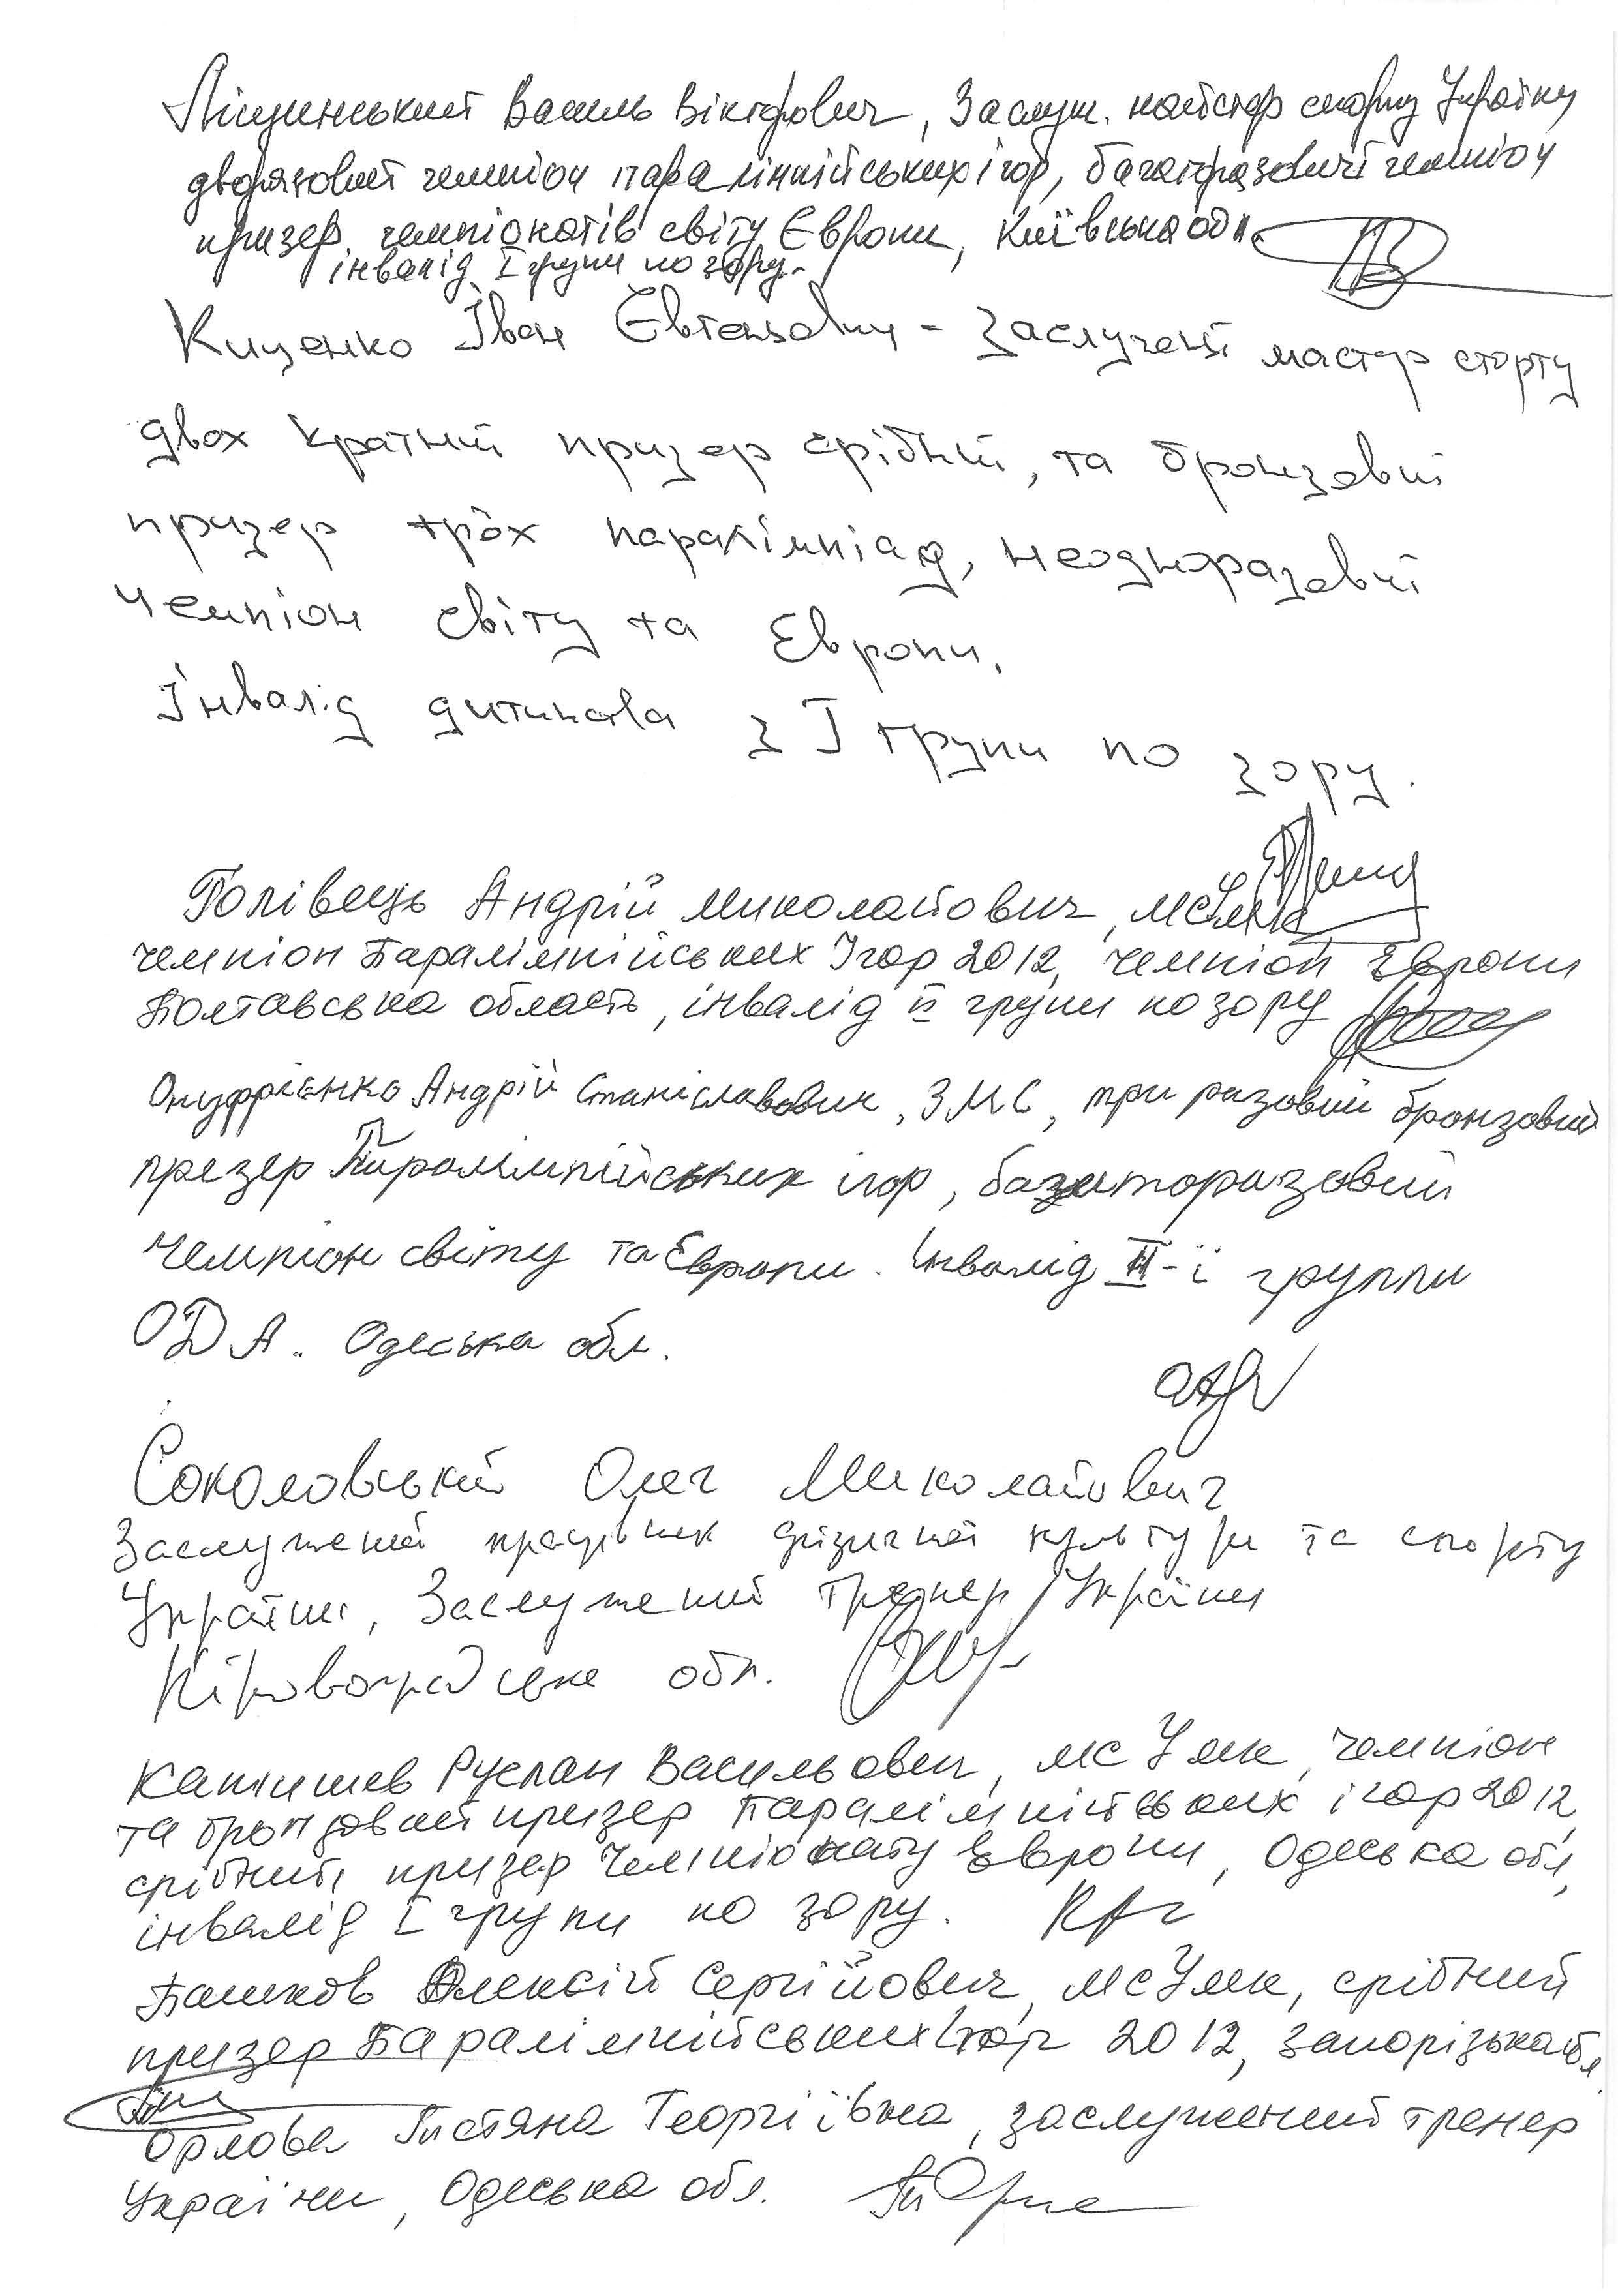 Ліщинський Василь Вікторович, Заслуж. майстер спорту України
дворазовий чемпіон паралімпійських ігор, багаторазовий чемпіон
призер чемпіонатів світу Європи, Київська обл.
інвалід I групи по зору.
Киценко Іван Євгеньович - Заслужений мастер спорту
двох кратний призер срібний, та бронзовий
призер трох паралімпіад, неодноразовий
чемпіон світу та Європи.
Інвалід дитинства з I групи по зору.
Голівець Андрій Миколайович, МСУмк
чемпіон Паралімпійських Ігор 2012, чемпіон Європи
Полтавська область, інвалід II групи по зору
Онуфрієнко Андрій Станіславович, ЗМС, три разовий бронзовий
презер Паралімпійських ігор, багаторазовий
Чемпіон світу та Європи. Інвалід II-ї группи
ОДА. Одеська обл.
Соколовський Олег Миколайович
Заслужений працівник фізичної культури та спорту
України, Заслужений тренер України
Кіровоградська обл.
Катишев Руслан Васильович, МСУмк, чемпіон
та бронзовий призер Паралімпійських ігор 2012,
срібний призер Чемпіонату Європи, Одеська обл,
інвалід I групи по зору.
Пашков Олексій Сергійович, МСУмк, срібний
призер Паралімпійських Ігор 2012, Запорізька обл.
Орлова Тистяна Георгіївна, заслужений тренер
України, Одеська обл.